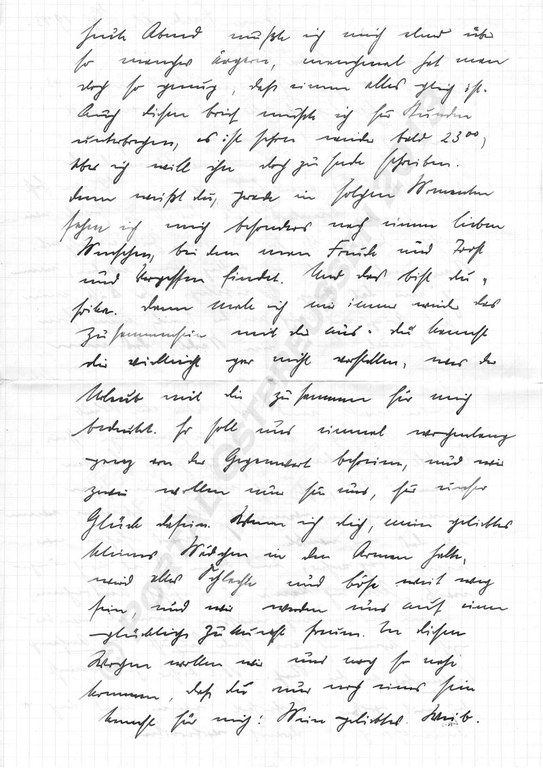 Heute Abend mußte ich mich eben über
so manches ärgern, manchmal hat man
doch so genug, daß einem alles gleich ist.
Auch diesen Brief mußte ich für Stunden
unterbrechen, es ist schon wieder bald 23⁰⁰,
Aber ich will ihn doch zu Ende schreiben.
Denn weißt du, grade in solchen Momenten
sehn ich mich besonders nach einem lieben
Menschen, bei dem man Freude und Trost
und Vergessen findet. Und das bist du,
Erika. Dann male ich mir immer wieder das
Zusammensein mit dir aus. du kannst
dir vielleicht gar nicht vorstellen, was der
Urlaub mit dir zusammen für mich
bedeutet. Er soll uns einmal wochenlang
ganz von der Gegenwart befreien, und wir
zwei wollen nur für uns, für unser
Glück dasein. Wenn ich dich, mein geliebtes
kleines Mädchen in den Armen halte,
wird alles Schlechte und böse weit weg
sein und wir werden uns auf eine
glückliche Zukunft freuen. In diesen
Wochen wollen wir uns noch so nahe
kommen, daß du nur noch eines sein
kannst für mich: Mein geliebtes Weib.